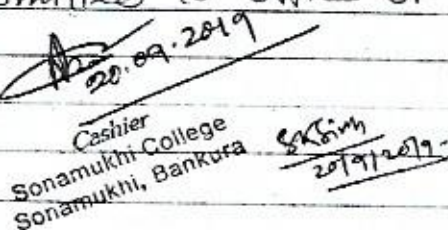 20.09.2019
Cashier
Sonamukhi College
Sonamukhi, Bankura
SKSinh
20/9/2019